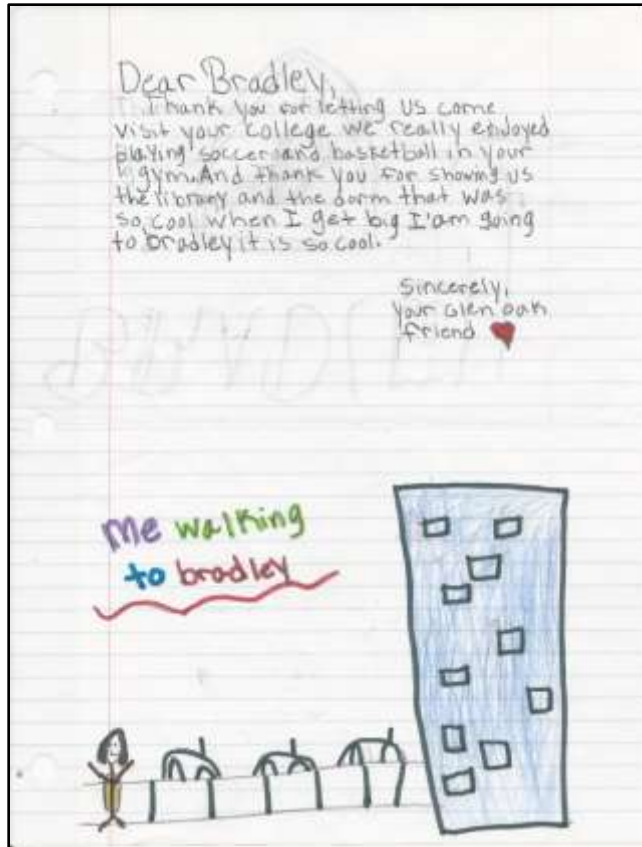 Dear Bradley,
Thank you for letting us come
visit your college we really enjoyed
playing soccer and basketball in your
gym. And thank you for showing us
the library and the dorm that was
so cool when I get big I'am going
to bradley it is so cool.
Sincerely,
your Glen oak
friend
Me walking
to bradley